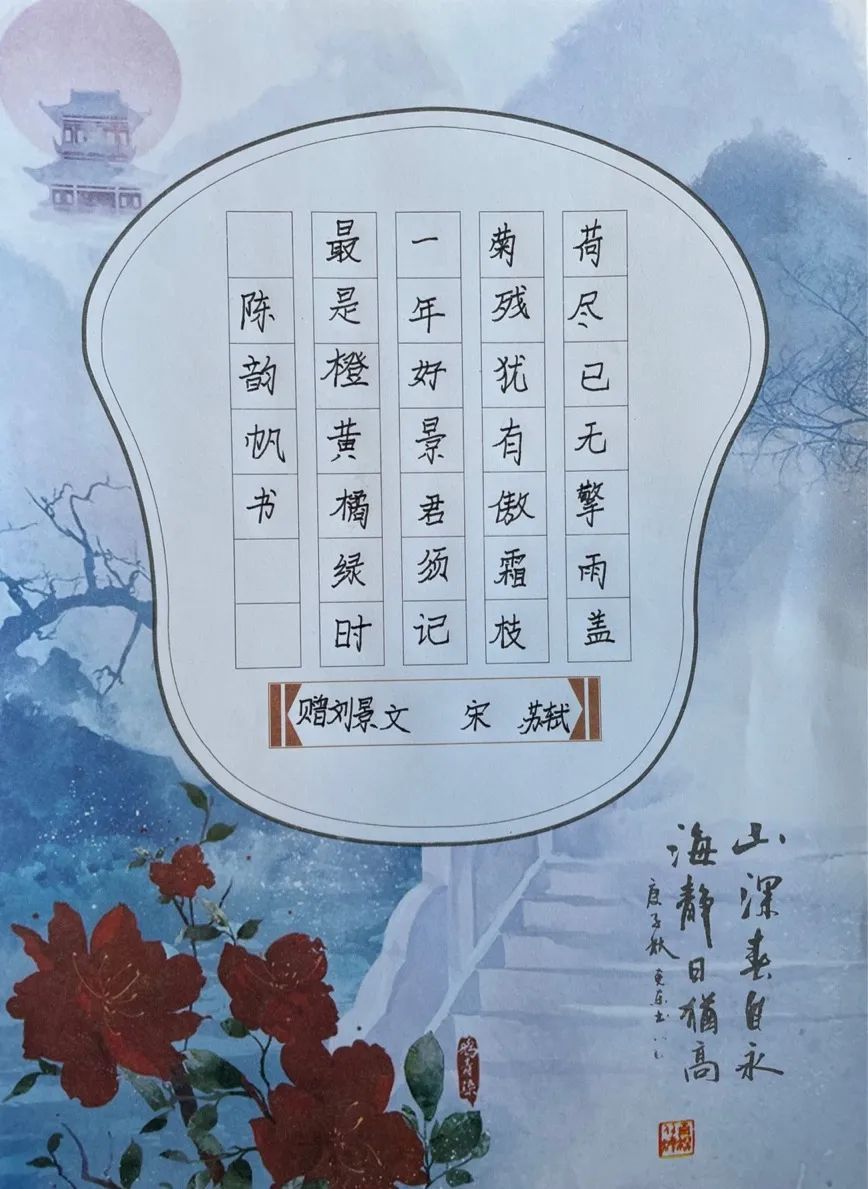 荷尽已无擎雨盖
菊残犹有傲霜枝
一年好景君须记
最是橙黄橘绿时
陈韵帆书
赠刘景文 宋 苏轼
山深春自永
海静日犹高
庚子秋